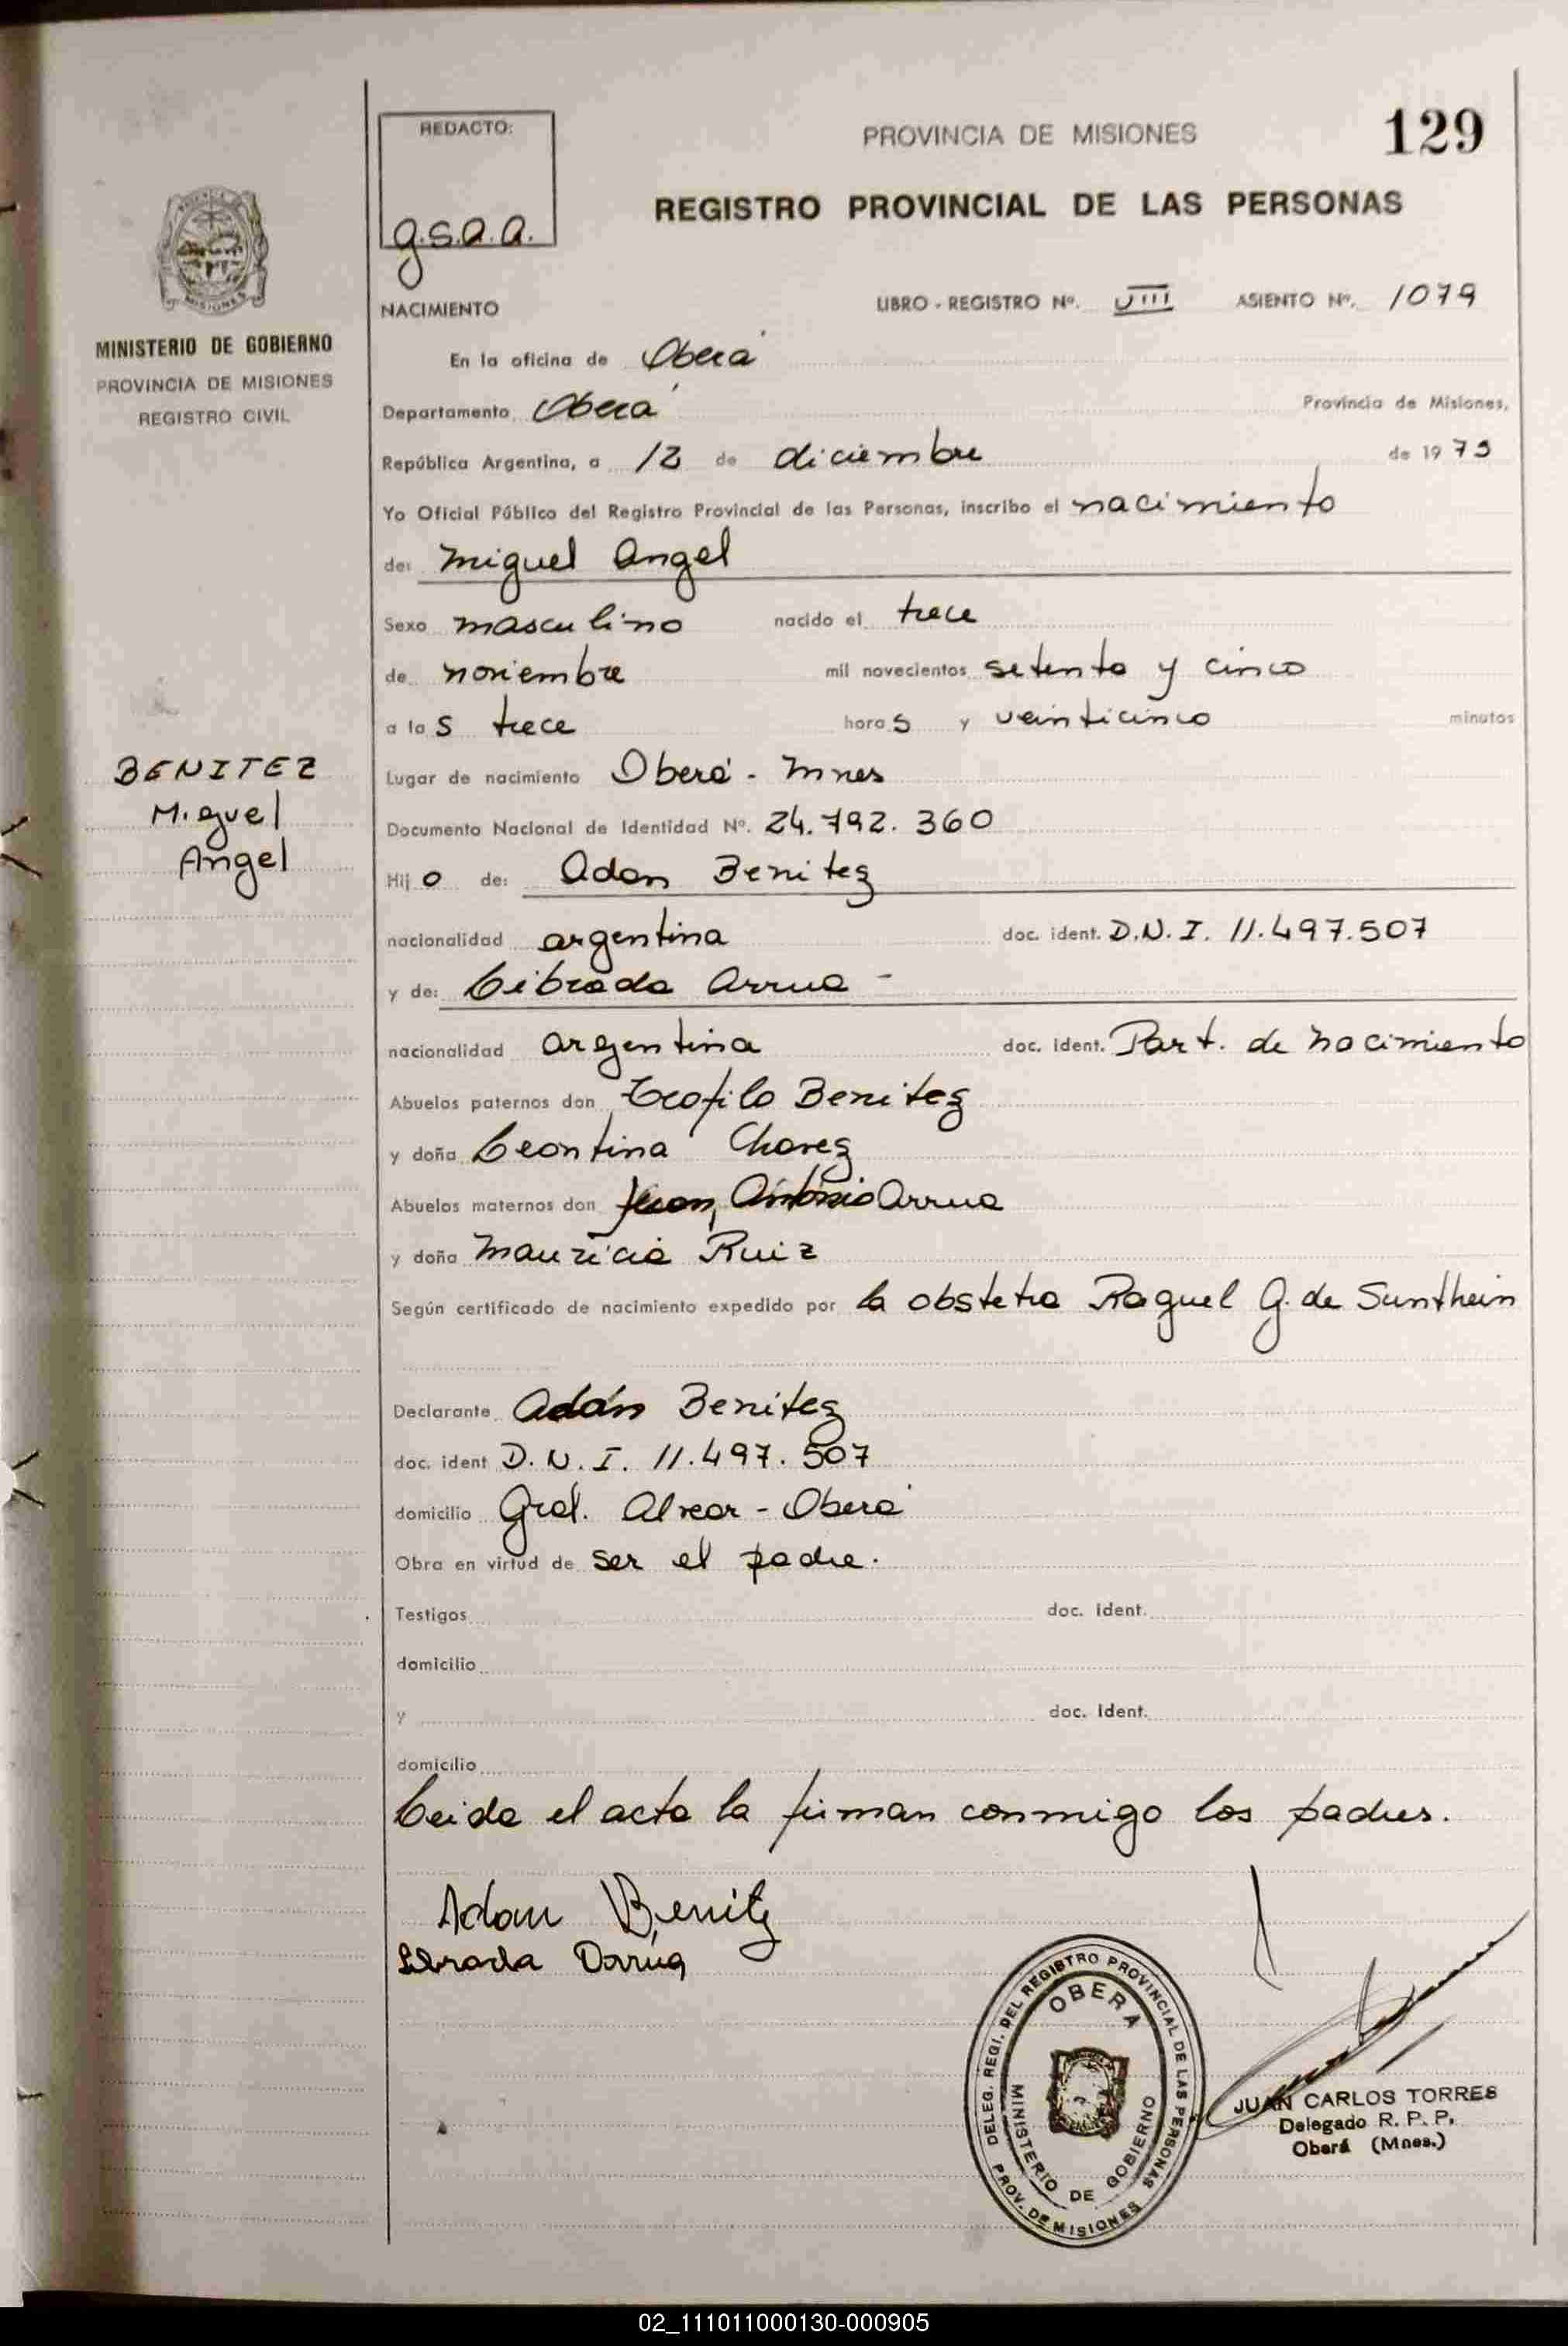 REDACTO:
g.s.a.a.
PROVINCIA DE MISIONES
129
REGISTRO PROVINCIAL DE LAS PERSONAS
MISIONES
MINISTERIO DE GOBIERNO
PROVINCIA DE MISIONES
REGISTRO CIVIL
NACIMIENTO LIBRO - REGISTRO Nº. VIII ASIENTO Nº. 1079
En la oficina de Oberá
Departamento Oberá Provincia de Misiones,
República Argentina, a 12 de diciembre de 1975
Yo Oficial Público del Registro Provincial de las Personas, inscribo el nacimiento
de: Miguel Angel
Sexo masculino nacido el trece
de noviembre mil novecientos setenta y cinco
a las trece horas y veinticinco minutos
BENITEZ
Miguel
Angel
Lugar de nacimiento Oberá - Mnes
Documento Nacional de Identidad Nº. 24.792.360
Hijo de: Adan Benitez
nacionalidad argentina doc. ident. D.N.I. 11.497.507
y de: Librada Arrua -
nacionalidad argentina doc. ident. Part. de nacimiento
Abuelos paternos don Teofilo Benitez
y doña Leontina Chavez
Abuelos maternos don Juan Antonio Arrua
y doña Mauricia Ruiz
Según certificado de nacimiento expedido por la obstetra Raquel G. de Sunthein
Declarante Adán Benitez
doc. ident D.N.I. 11.497.507
domicilio Gral. Alvear - Oberá
Obra en virtud de ser el padre.
Testigos doc. ident.
domicilio
y doc. ident.
domicilio
Leida el acta la firman conmigo los padres.
Adan Benitz
Librada Darrúa
DELEG. REGI. DEL REGISTRO PROVINCIAL DE LAS PERSONAS
OBERA
MINISTERIO DE GOBIERNO
PROV. DE MISIONES
JUAN CARLOS TORRES
Delegado R. P. P.
Oberá (Mnes.)
02_111011000130-000905